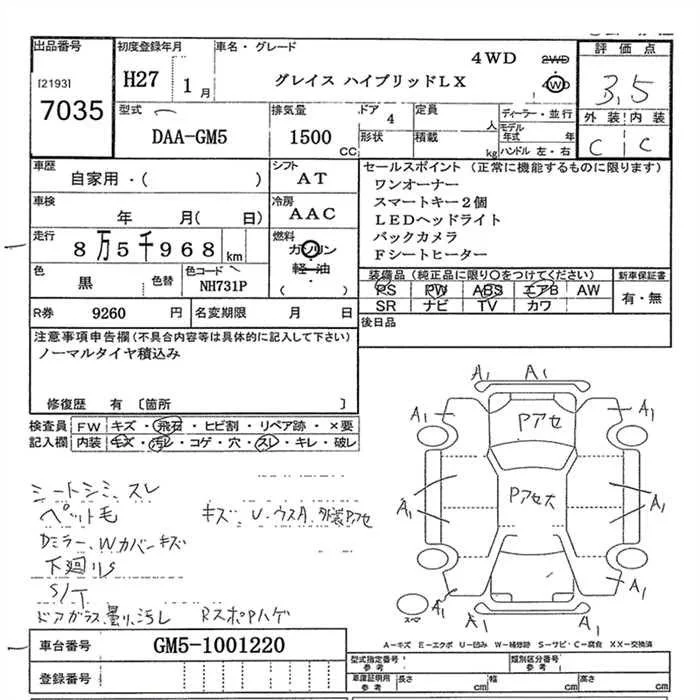 出品番号 初度登録年月 車名・グレード 4WD 2WD 評価点
[2193] H27 1月 グレイス ハイブリッドLX 4WD 3.5
7035 外装 内装
型式 排気量 ドア 4 定員 人 ディーラー・並行 C C
DAA-GM5 1500 CC 形状 積載 kg モデル年式 年
ハンドル 左・右
車歴 シフト セールスポイント (正常に機能するものに限ります)
自家用・( ) AT ワンオーナー
車検 年 月( 日) 冷房 AAC スマートキー2個
LEDヘッドライト
走行 8万5千968km 燃料 ガソリン バックカメラ
軽・油 Fシートヒーター
色 黒 色替 色コード NH731P ( ・ ) 装備品(純正品に限り○をつけてください) 新車保証書
PS PW ABS エアB AW 有・無
SR ナビ TV カワ
R券 9260 円 名変期限 月 日 後日品
注意事項申告欄(不具合内容等は具体的に記入して下さい)
ノーマルタイヤ積込み
修復歴 有 〔箇所 〕
検査員 FW キズ・飛石・ヒビ割・リペア跡・×要
記入欄 内装 キズ・汚レ・コゲ・穴・スレ・キレ・破レ
シートシミ、スレ
ペット毛 キズ、U・ウスA、外装Pアセ
Dミラー、Wカバーキズ
下廻りS
S/T
ドアガラス曇り、汚レ RスポPハゲ
A1 A1
A1 Pアセ A1
A1 Pアセ大 A1
A1 A1
スーマ A1 A1
A-キズ E-エクボ U-凹み W-補修跡 S-サビ C-腐食 XX-交換済
車台番号 GM5-1001220
型式指定番号 参考 類別区分番号 参考
登録番号 車庫証明用 参考 長さ cm 幅 cm 高さ cm